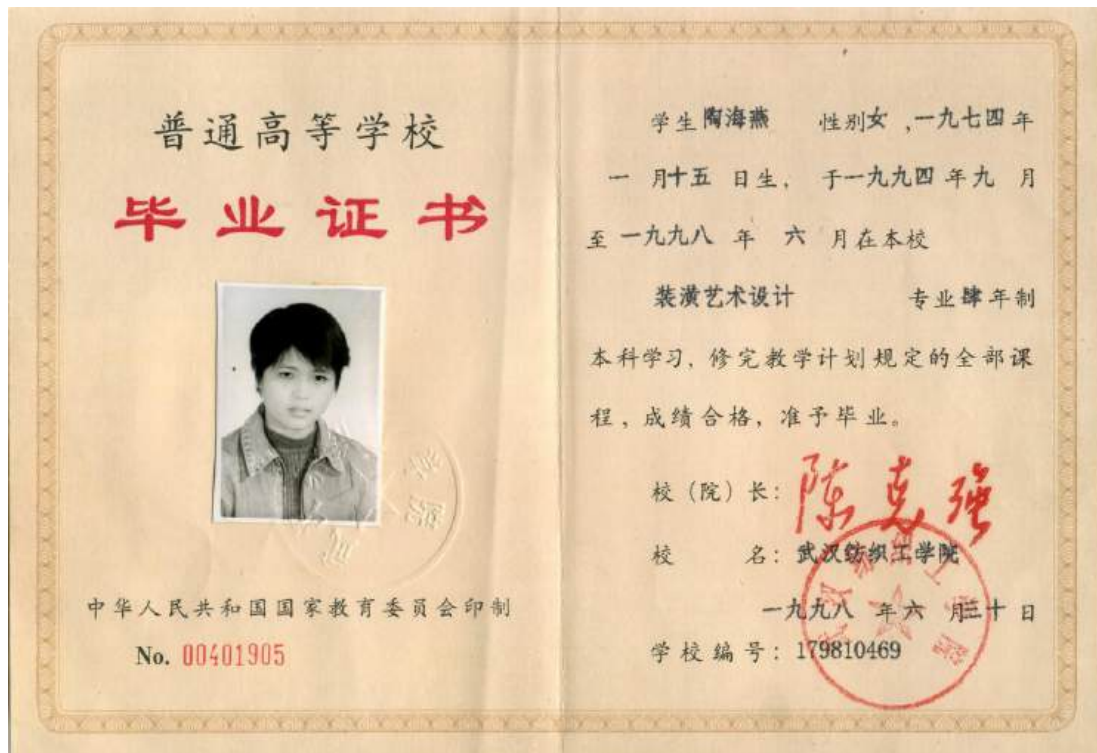 普通高等学校
毕业证书
中华人民共和国国家教育委员会印制
No. 00401905
学生陶海燕 性别女,一九七四年
一月十五日生, 于一九九四年九月
至一九九八年六月在本校
装潢艺术设计 专业肆年制
本科学习, 修完教学计划规定的全部课
程, 成绩合格, 准予毕业。
校(院)长: 陈克强
校 名: 武汉纺织工学院
一九九八年六月三十日
学校编号: 179810469
武汉纺织工学院